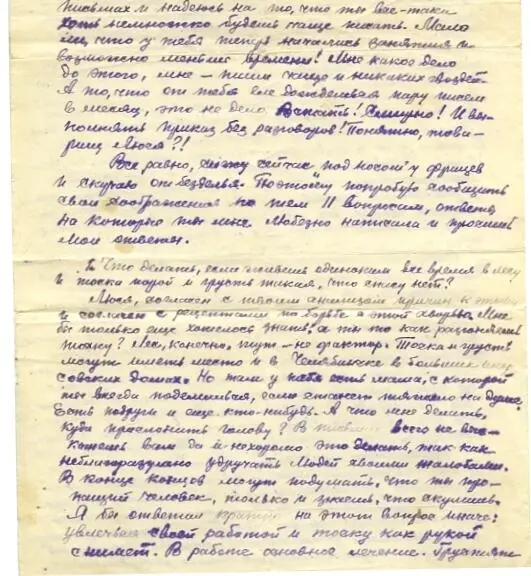 письмах и надеюсь на то, что ты все-таки
хоть немножко будешь чаще писать. Мало
ли, что у тебя теперь начались занятия и
возможно меньше времени! Мне какое дело
до этого, мне – пиши чаще и никаких гвоздей.
А то, что от тебя еле дождешься пару писем
в месяц, это не дело. Встать! Смирно! И вы-
полнять приказ без разговоров! Понятно, това-
рищ Люся?!
Все равно, сижу сейчас под носом у фрицев
и скучаю от безделья. Поэтому попробую сообщить
свои соображения по тем 11 вопросам, ответы
на которые ты мне любезно написала и просишь
мои ответы.
1. Что делать, если живешь одиноким все время в лесу
и тоска порой и грусть такая, что спасу нет?
Люся, согласен с твоим анализом причин к этому
и согласен с рецептами по борьбе с этой хворью. Мне
бы только еще хотелось знать: а ты то как разгоняешь
тоску? Лес, конечно, тут – не фактор. Тоска и грусть
могут иметь место и в Челябинске в больших
совских домах. Но там у тебя есть мама, с которой
ты всегда поделишься, если станет тяжело на душе.
Есть подруги и еще кто-нибудь. А что мне делать,
куда преклонить голову? В письме всего не вы-
скажешь вам да и нехорошо это делать, так как
неблагоразумно удручать людей своими жалобами.
В конце концов могут подумать, что ты про-
пащий человек, только и знаешь, что скулишь.
Я бы ответил кратко на этот вопрос иначе:
увлечься своей работой и тоску как рукой
снимет. В работе основное лечение. Грустите